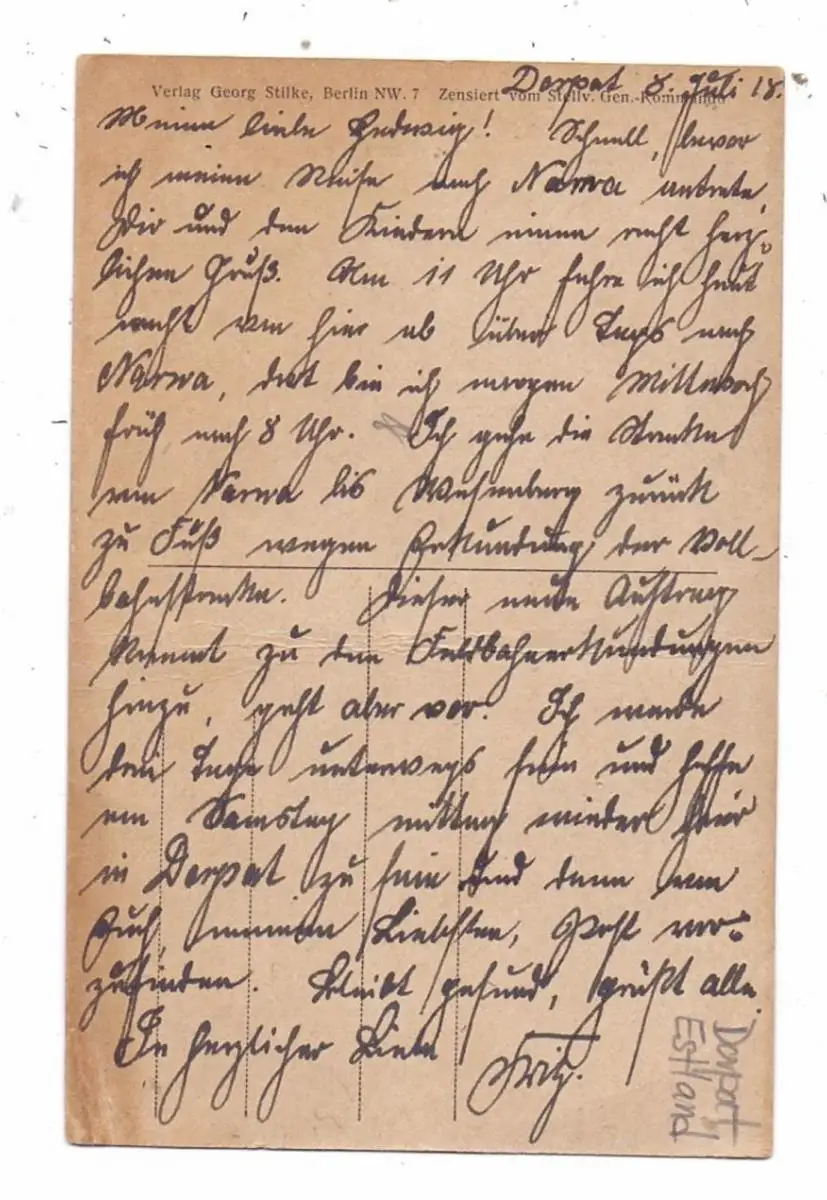 Dorpat 8. Juli 18.
Verlag Georg Stilke, Berlin NW. 7 Zensiert vom Stellv. Gen.-Kommando
Meine liebe Hedwig! Schnell, bevor
ich meine Reise nach Narwa antrete,
Dir und den Kindern einen recht herz-
lichen Gruß. Um 11 Uhr fahre ich heut
nacht von hier ab über Taps nach
Narwa, dort bin ich morgen Mittwoch
früh nach 8 Uhr. Ich gehe die Strecke
von Narwa bis Wesenberg zurück
zu Fuß wegen Erkundung der Voll-
bahnstrecke. Dieser neue Auftrag
kommt zu den Felbahnerkundungen
hinzu, geht aber vor. Ich werde
drei Tage unterwegs sein und hoffe
am Samstag mittag wieder hier
in Dorpat zu sein und dann von
Euch, meinen Liebsten, Post vor-
zufinden. Bleibt gesund, grüßt alle.
In herzlicher Liebe
Fritz.
Dorpat
Estland